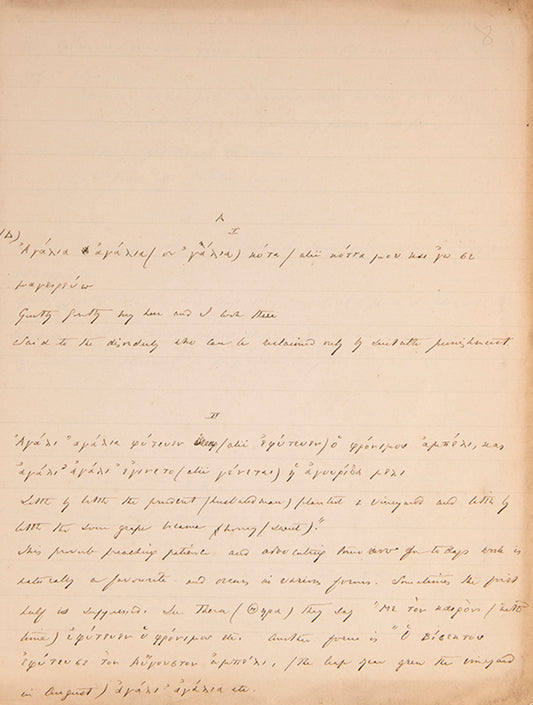 8
A
I
Ἀγάλια ἀγάλια (or γάλια) κότα / alii κόττα μου και γω σε
μαγειρεύω
Gently gently my hen and I cook thee
Said to the disorderly who can be restrained only by suitable punishment
II
Ἀγάλι ἀγάλια φύτευεν (alii ἐφύτευεν) ὁ φρόνιμος ἀμπέλι, και
ἀγάλι ἀγάλι ἐγίνετο (alii γένεται) ἡ ἀγουρίδα μέλι
Little by little the prudent (husbandman) planted a vineyard and little by
little the sour grape became honey (sweet)."
This proverb preaching patience and advocating for to days work is
naturally a favourite and occurs in various forms. Sometimes the first
half is suppressed. In Thera (Θηρα) they say "Με τον καιρὸν / (with
time) ἐφύτευεν ὁ φρόνιμος etc. Another form is "Ὁ Βίσεκτος
ἐφύτευσε τον Αὔγουστον ἀμπέλι, (the leap year grew the vineyard
in August) ἀγάλι ἀγάλια etc.